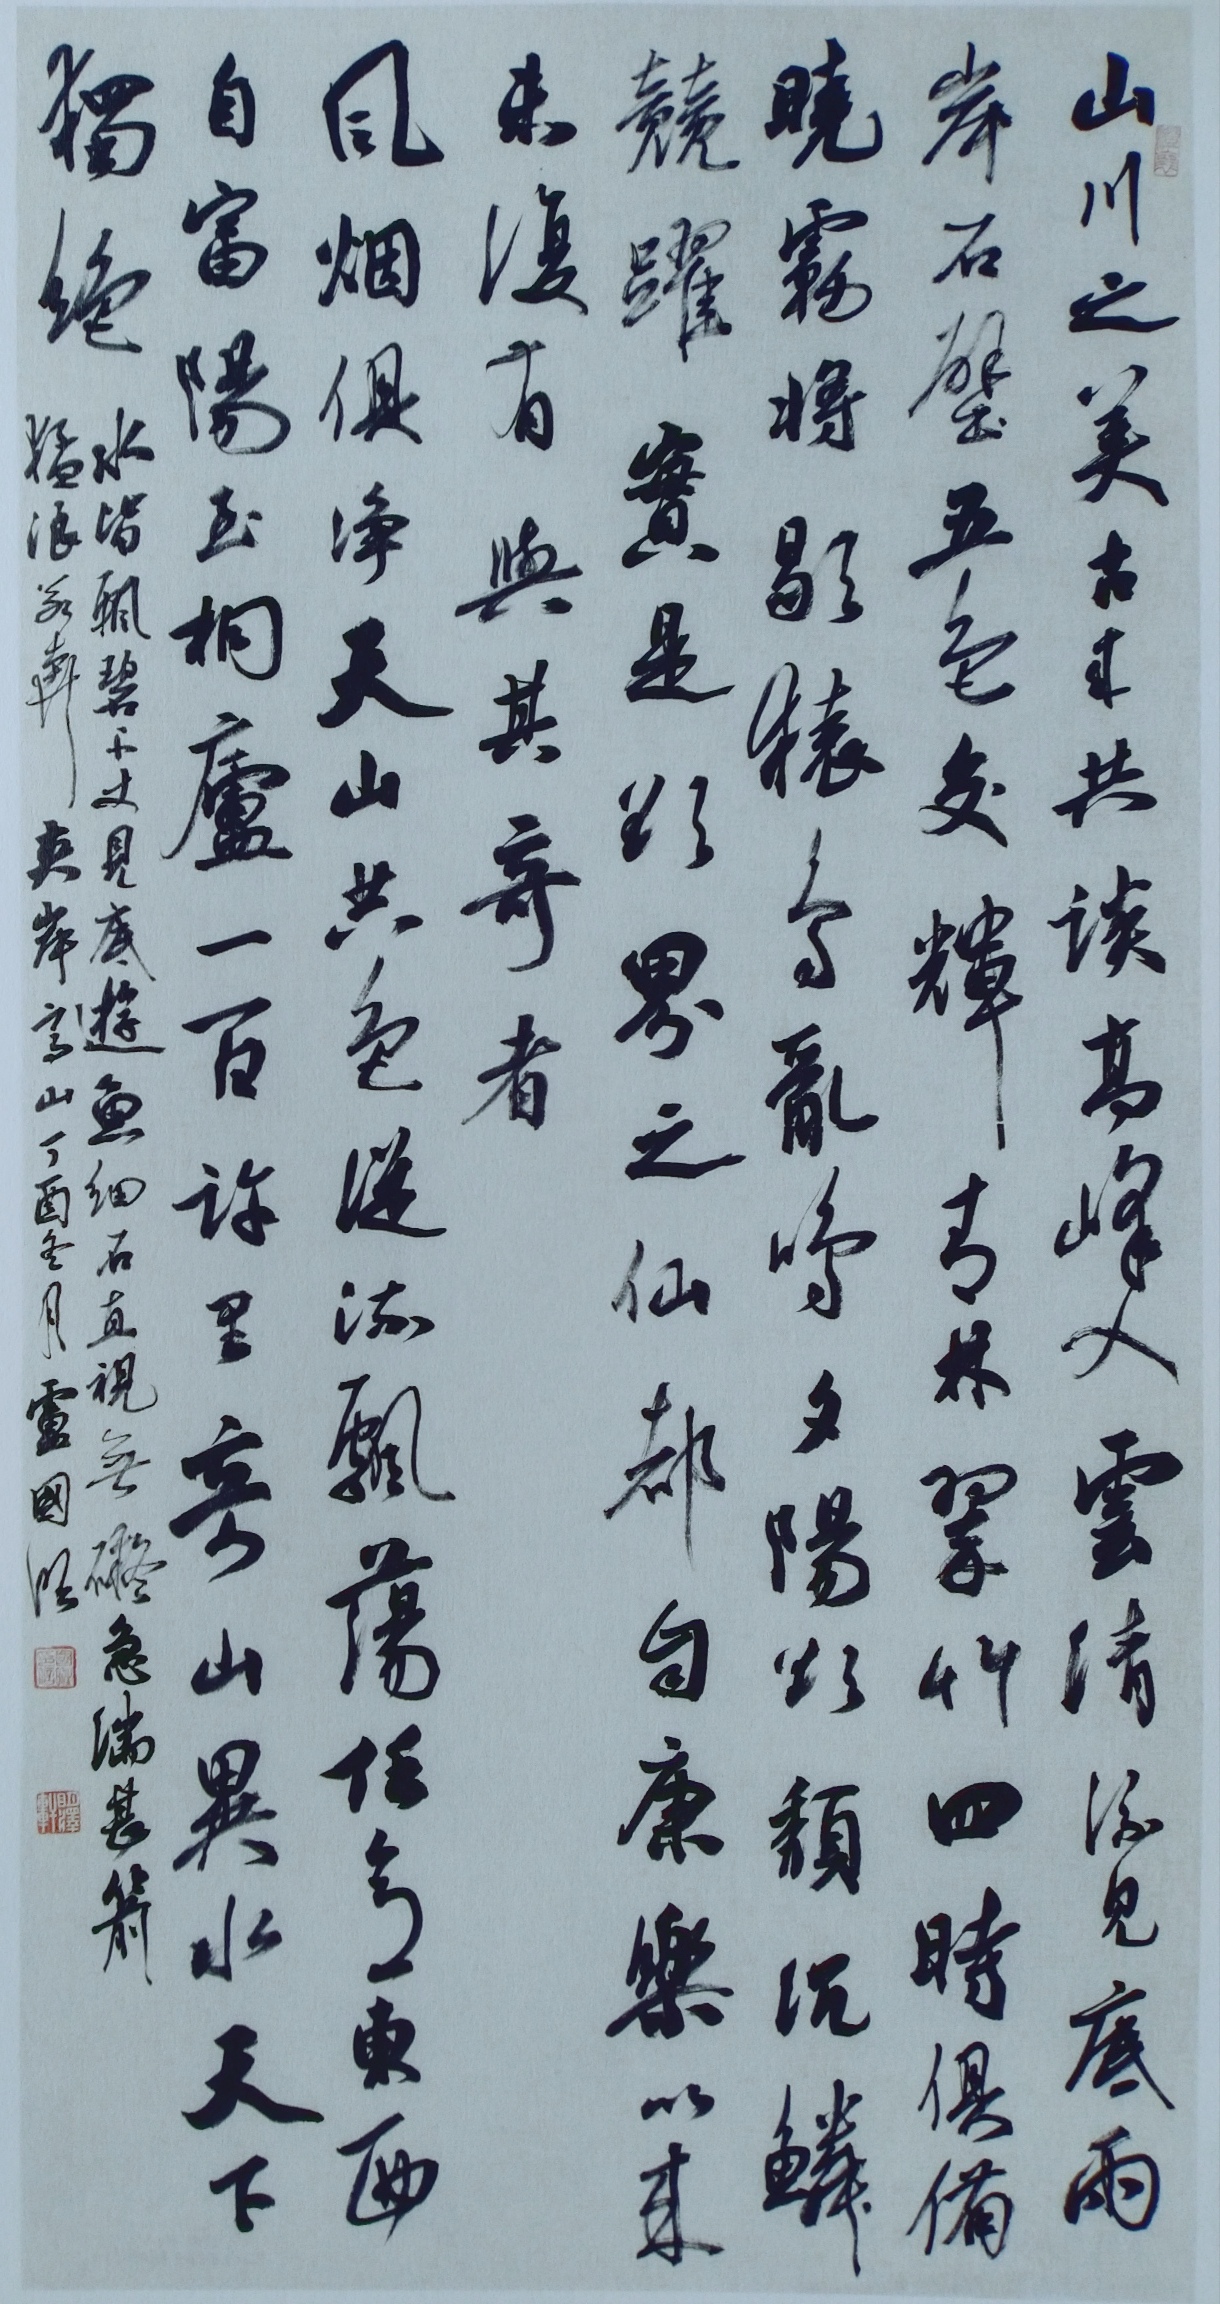 山川之美古來共談高峰入雲清流見底兩
岸石壁五色交輝青林翠竹四時俱備
曉霧將歇猿鳥亂鳴夕陽欲頹沉鱗
競躍實是欲界之仙都自康樂以來
未復有與其奇者
風烟俱淨天山共色從流飄蕩任意東西
自富陽至桐廬一百許里奇山異水天下
獨絕
水皆飄碧千丈見底遊魚細石直視無礙急湍甚箭
猛浪若奔夾岸高山丁酉冬月盧國